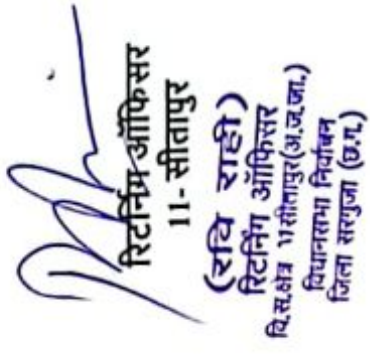 रिटर्निंग ऑफिसर
11- सीतापुर
(रवि राही)
रिटर्निंग ऑफिसर
वि.स.क्षेत्र 11सीतापुर(अ.ज.जा.)
विधानसभा निर्वाचन
जिला सरगुजा (छ.ग.)